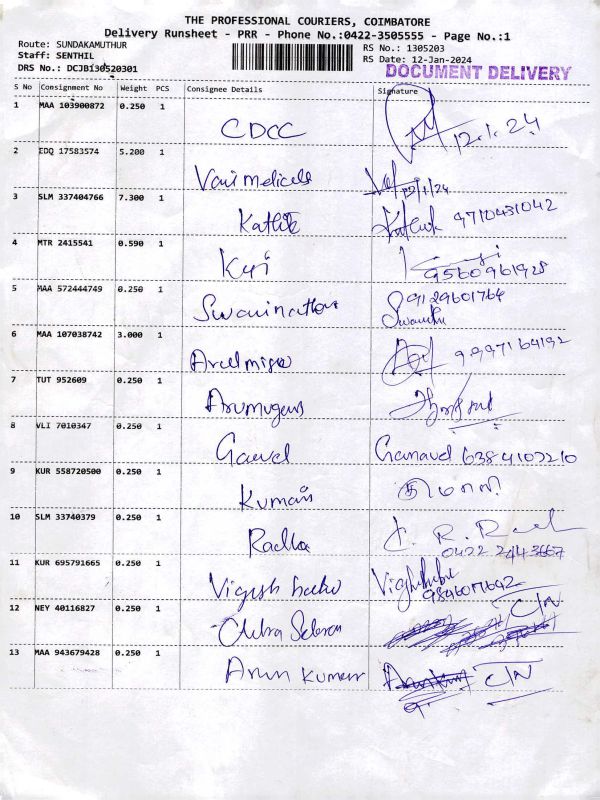 THE PROFESSIONAL COURIERS, COIMBATORE
Delivery Runsheet - PRR - Phone No.:0422-3505555 - Page No.:1
Route: SUNDAKAMUTHUR
Staff: SENTHIL
DRS No.: DCJB130520301
RS No.: 1305203
RS Date: 12-Jan-2024
DOCUMENT DELIVERY
S No Consignment No Weight PCS Consignee Details Signature
1 MAA 103900872 0.250 1 CDCC 12.1.24
2 EDQ 17583574 5.200 1 Vani medicals 12/1/24
3 SLM 337404766 7.300 1 Kathik 9710431042
4 MTR 2415541 0.590 1 9560961928
5 MAA 572444749 0.250 1 Swaminathan 9129601764
6 MAA 107038742 3.000 1 9997164192
7 TUT 952609 0.250 1 Arumugam
8 VLI 7010347 0.250 1 6384102210
9 KUR 558720500 0.250 1 Kumar
10 SLM 33740379 0.250 1 Radha R. 0422 2443667
11 KUR 695791665 0.250 1 Vignesh
12 NEY 40116827 0.250 1 Chitra C/N
13 MAA 943679428 0.250 1 Arun Kumar C/N